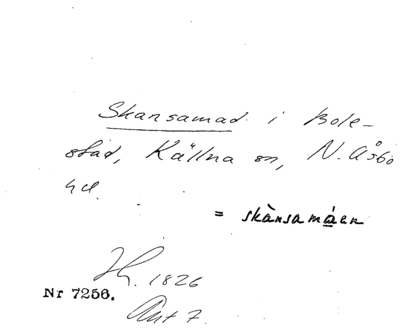 Skansamad i Bole-
stad, Källna sn, N. Åsbo
hd.
= skànsamáen
Hr. 1826
Nr 7256.
Akt 7.